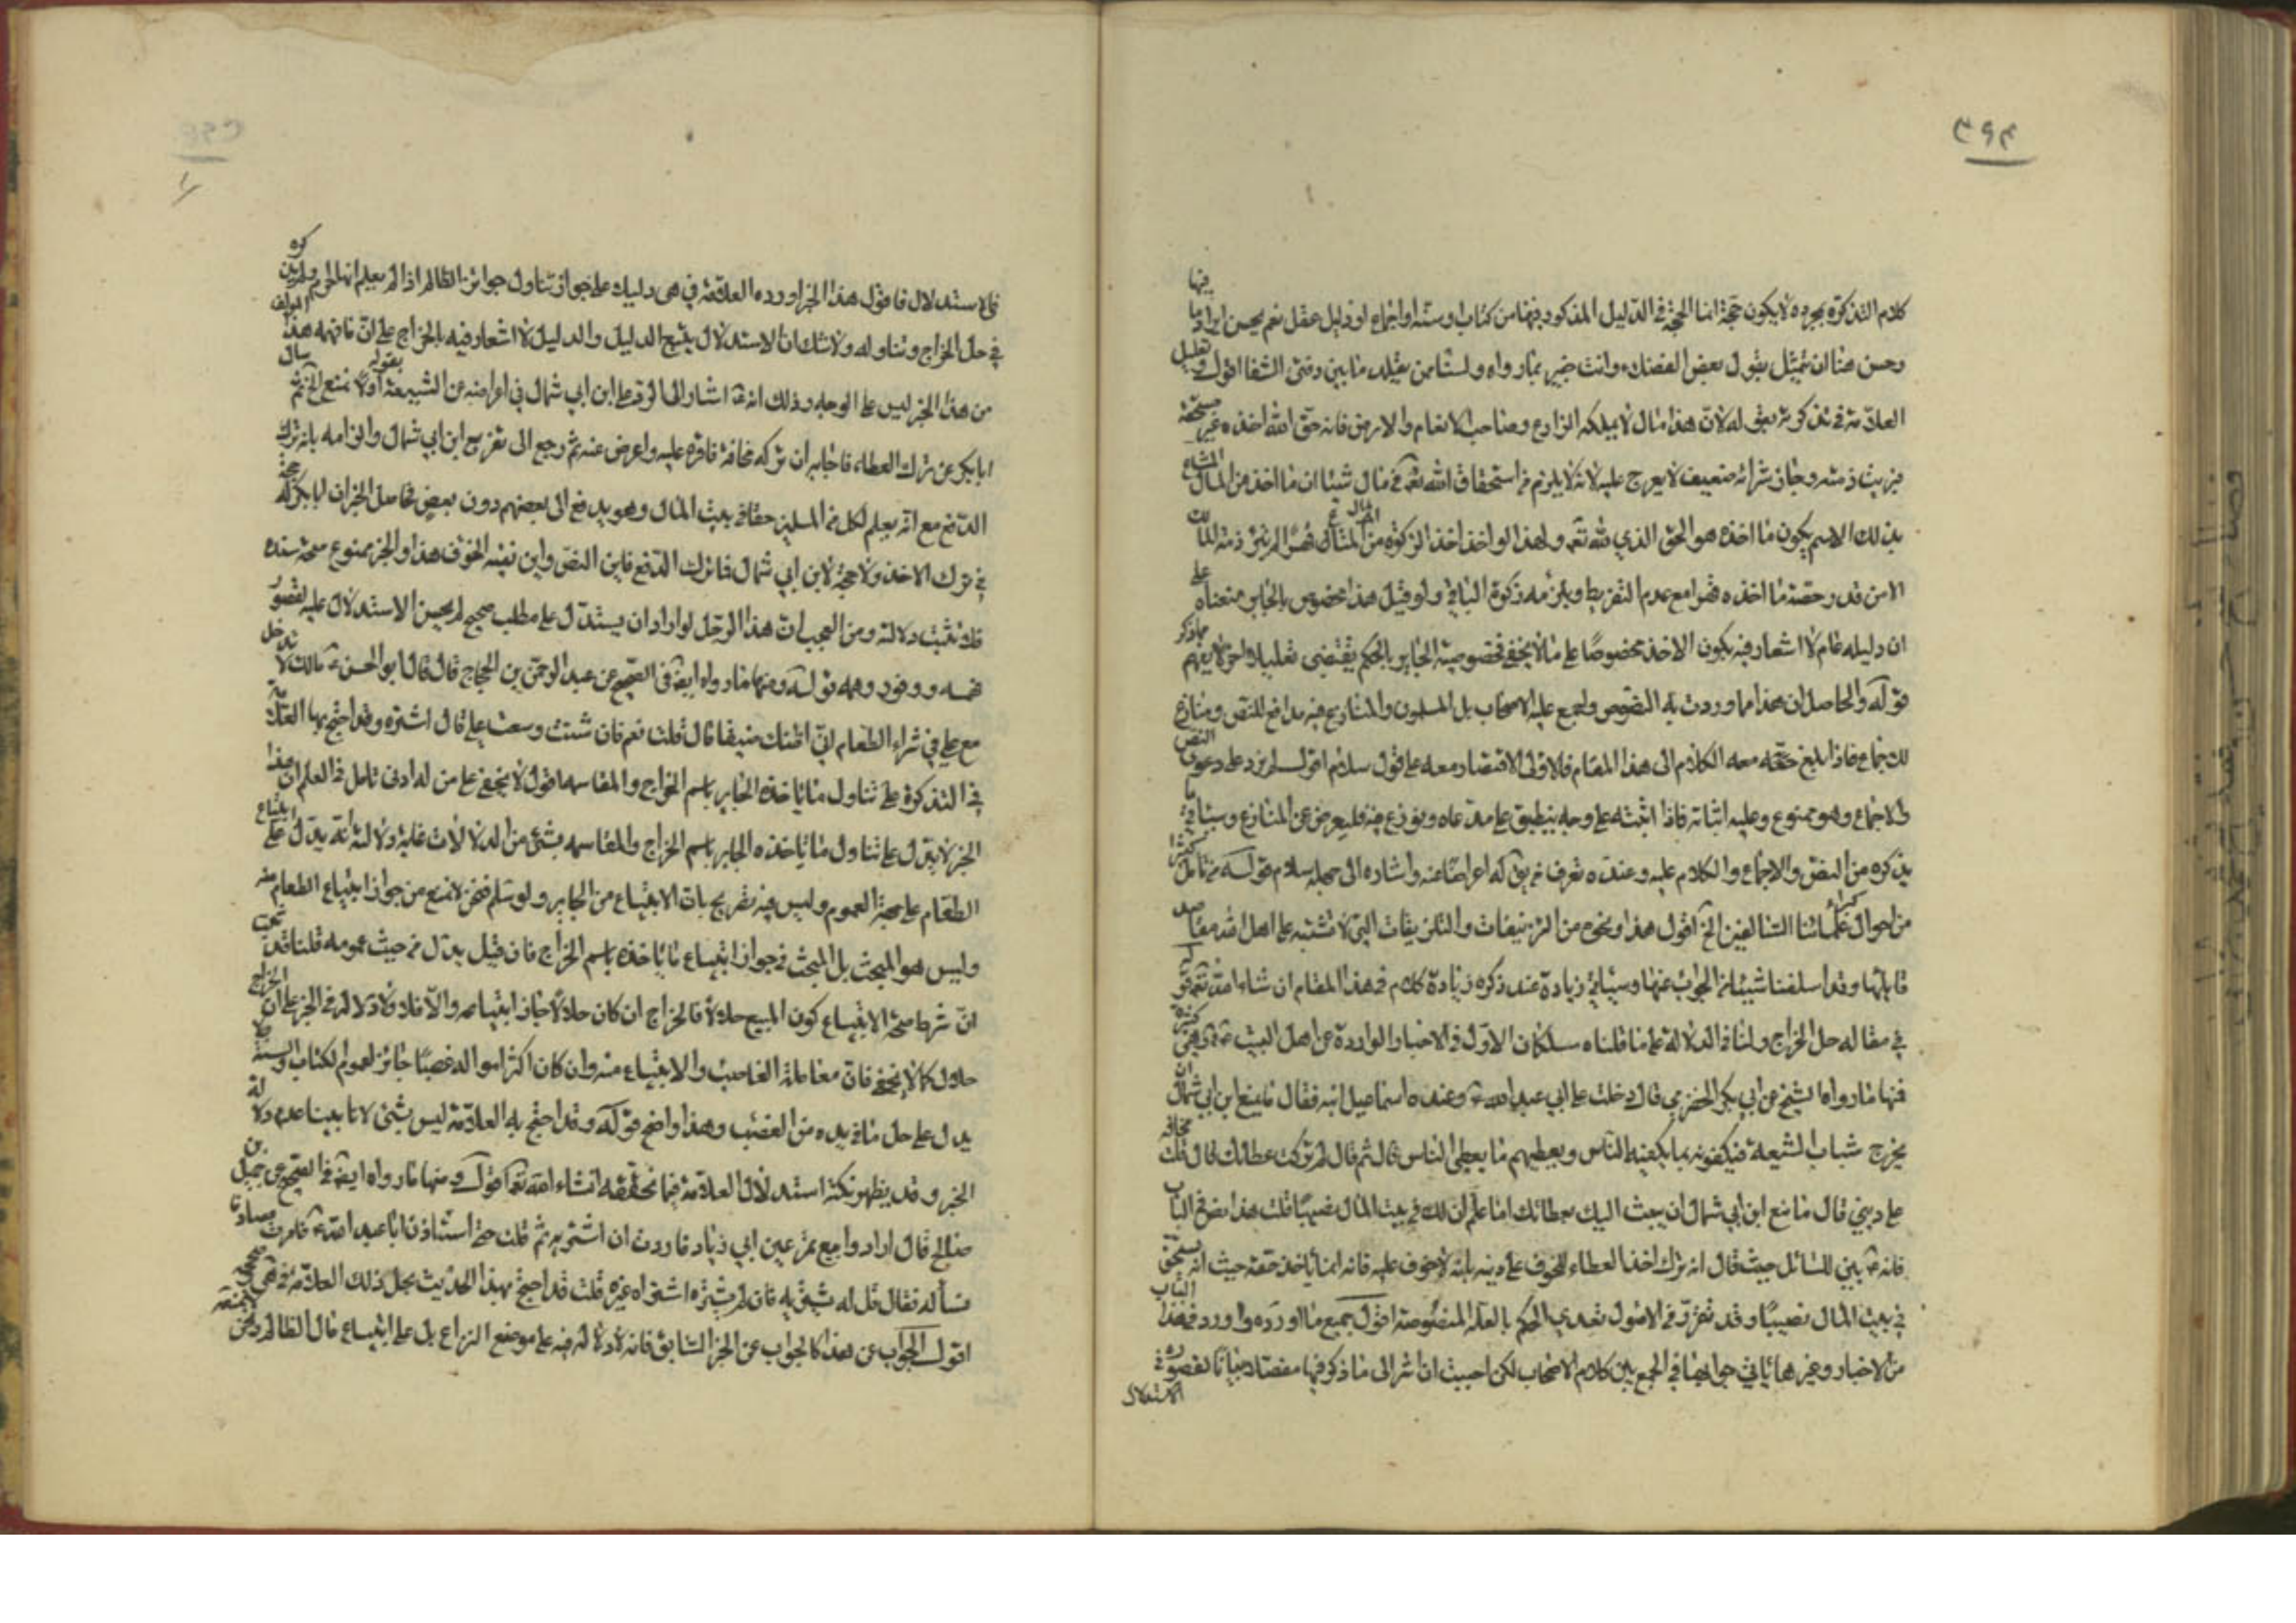 ٣٩٤
كلام التذكرة بمجرده لا يكون حجة انما الحجة في الدليل المذكور فيها من كتاب او سنة او اجماع او دليل عقل نعم يحسن ايراد ما فيها
وحسن هنا ان نتمثل بقول بعض الفضلاء وانت خبير بما رواه ولسنا ممن يقلد ما بين دفتي الشفا اقول
العلامة في تذكرته بقوله لان هذا مال لا يملكه الزارع وصاحب الانعام والارض فانه حق الله اخذه غير مستحقه
فبرئت ذمته وجاز شرائه ضعيف لا يعرج عليه لانه لا يلزم من استحقاق الله تعالى في مال شيئا ان ما اخذ من المال
بذلك الاسم يكون ما اخذه هو الحق الذي لله تعالى ولهذا لو اخذ اخذ الزكوة من المال قهرا لم تبرئ ذمة المالك
الا من قدر حصة ما اخذه قهرا مع عدم التفريط ويلزمه زكوة الباقي ولو قيل هذا مخصوص بالجابر منعناه على
ان دليله عام لا اشعار فيه بكون الاخذ مخصوصا على ما لا يخفى فخصوصية الجابر بالحكم يقتضي تعليلا اخر لا يفهم مما ذكر
قوله والحاصل ان هذا مما وردت به النصوص واجمع عليه الاصحاب بل المسلمون والمنازع فيه مدافع للنص ومنازع
للاجماع فاذا بلغ حقه معه الكلام الى هذا المقام فالاولى الاقتصار معه على قول سلام اقول لم يزد على دعوى النص
والاجماع وهو ممنوع وعليه اثباته فاذا اثبته على وجه ينطبق على مدعاه ونوزع فيه فليعرض عن المنازع وسيأتي ما
يذكره من النص والاجماع والكلام عليه وعنده تعرف من يقول له اعراضا عنه واشارة الى جهله سلام قوله من تأمل كثيرا
من احوال كبراء علمائنا السالفين الخ اقول هذا ونحوه من التزييفات والتلزيقات التي لا تشتبه على اهل الله
قابلها وقد اسلفنا شيئا من الجواب عنها وسيأتي زيادة عند ذكره زيادة كلام في هذا المقام ان شاء الله تعالى قوله
في مقاله حل الخراج ولنا في الدلالة على ما قلناه مسلكان الاول في الاخبار الواردة عن اهل البيت ع وهي كثيرة
فمنها ما رواه الشيخ عن ابي بكر الحضرمي قال دخلت على ابي عبد الله ع وعنده اسماعيل ابنه فقال ما يمنع ابن ابي شمال ان
يخرج شباب الشيعة فيكفونه بما يكفيه الناس ويعطيهم ما يعطي الناس قال ثم قال لم تركت عطائك قال قلت مخافة
على ديني قال ما منع ابن ابي شمال ان يبعث اليك بعطائك اما علم ان لك في بيت المال نصيبا قلت هذا نص في الباب
فانه ع بين للسائل حيث قال انه ترك اخذ العطاء للخوف على دينه بانه لا خوف عليه فانه انما ياخذ حقه حيث انه يستحق
في بيت المال نصيبا وقد تقرر في الاصول تعدي الحكم بالعلة المنصوصة اقول جميع ما اورده واورد في هذا الباب
من الاخبار وغيرها يأتي جوابها في الجمع بين كلام الاصحاب لكن احببت ان اشر الى ما ذكر فيها مفصلا بيانا لقصوره في
الاستدلال
في الاستدلال فاقول هذا الخبر اورده العلامة في هي دليلا على جواز تناول جوائز الظالم اذا لم يعلم انها حرام ولم يذكره
في حل الخراج وتناوله ولا شك ان الاستدلال يتبع الدليل والدليل لا اشعار فيه بالخراج على ان ما فهمه هذا المؤلف
من هذا الخبر ليس على الوجه وذلك انه ع اشار الى الرد على ابن ابي شمال في اعراضه عن الشيعة اولا بقوله ما يمنع الخ ثم سأل
ابا بكر عن ترك العطاء فاجابه ان تركه مخافة فاقره عليه واعرض عنه ثم رجع الى تقريع ابن ابي شمال والزامه بانه ترك
الدفع مع انه يعلم لكل من المسلمين حقا في بيت المال وهو يدفع الى بعضهم دون بعض فحاصل الخبر ان ابا بكر له حجة
في ترك الاخذ ولا حجة لابن ابي شمال في ترك الدفع فاين النص واين نفيه الخوف هذا والخبر ممنوع صحة سنده
فلا تثبت دلالته ومن العجب ان هذا الرجل لو اراد ان يستدل على مطلب صحيح لم يحسن الاستدلال عليه لقصور
فهمه ووفور وهمه قوله ومنها ما رواه ايضا في الصحيح عن عبد الرحمن بن الحجاج قال قال لي ابو الحسن ع مالك لا تدخل
مع علي في شراء الطعام اني اظنك ضيقا قال قلت نعم فان شئت وسعت علي قال اشتره وقد احتج بها العلامة
في التذكرة على تناول ما ياخذه الجابر باسم الخراج والمقاسمة اقول لا يخفى على من له ادنى تامل في العلم ان هذا
الخبر لا يدل على تناول ما ياخذه الجابر باسم الخراج والمقاسمة بشئ من الدلالات غايته دلالة انه يدل على ابتياع
الطعام على جهة العموم وليس فيه تصريح بان الابتياع من الجابر ولو سلم فنحن لا نمنع من جواز ابتياع الطعام منه
وليس هو المبحث بل المبحث في جواز ابتياع ما ياخذه باسم الخراج فان قيل يدل من حيث عمومه قلنا
ان شرط صحة الابتياع كون المبيع حلالا فالخراج ان كان حلالا جاز ابتياعه والا فلا ولا دلالة في الخبر على ان الخراج
حلال كما لا يخفى فان معاملة الغاصب والابتياع منه وان كان اكثر امواله غصبا جائز لعموم الكتاب والسنة ولا
يدل على حل ما في يده من الغصب وهذا واضح قوله وقد احتج به العلامة ليس بشئ لانا بينا عدم دلالة
الخبر وقد يظهر نكتة استدلال العلامة فيما نحققه انشاء الله تعالى قوله ومنها ما رواه ايضا في الصحيح عن جميل بن
صالح قال ارادوا بيع تمر عين ابي زياد فاردت ان اشتريه ثم قلت حتى استأذن ابا عبد الله ع فامرت مصادفا
فسأله فقال قل له يشتريه فان لم يشتره اشتراه غيره قلت قد احتج بهذا الحديث بحل ذلك العلامة في هي
اقول الجواب عن هذا كالجواب عن الخبر السابق فانه لا دلالة فيه على موضع النزاع بل على ابتياع مال الظالم ونحن لا نمنعه